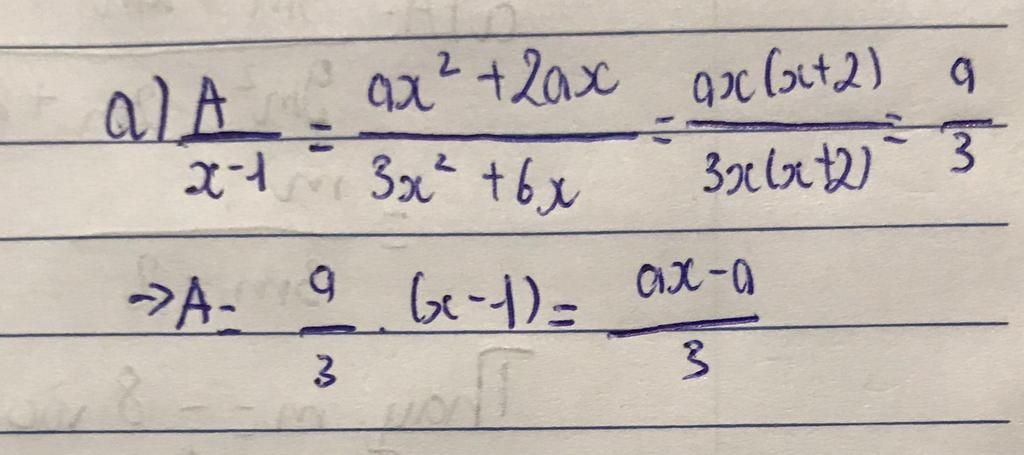 a) A/(x-1) = (ax² + 2ax)/(3x² + 6x) = ax(x+2)/3x(x+2) = a/3
→ A = a/3 . (x-1) = (ax-a)/3